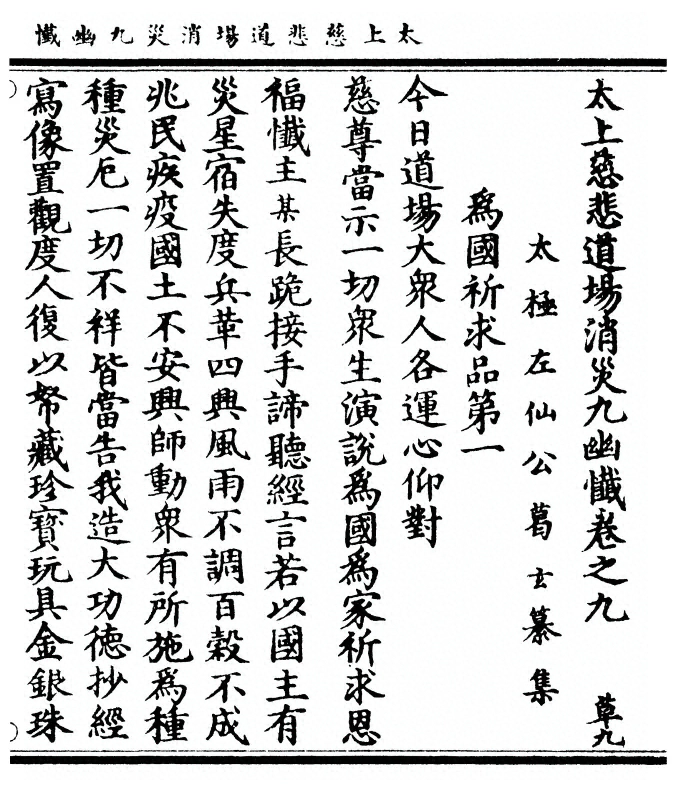 太上慈悲道場消災九幽懺
太上慈悲道場消災九幽懺卷之九
草九
太極左仙公葛玄纂集
為國祈求品第一
今日道場大衆人各運心仰對
慈尊當示一切衆生演說為國為家祈求恩
福懺主某長跪接手諦聽經言若以國主有
災星宿失度兵革四興風雨不調百穀不成
兆民疾疫國土不安興師動衆有所施為種
種災厄一切不祥皆當告我造大功德抄經
寫像置觀度人復以帑藏珍寶玩具金銀珠